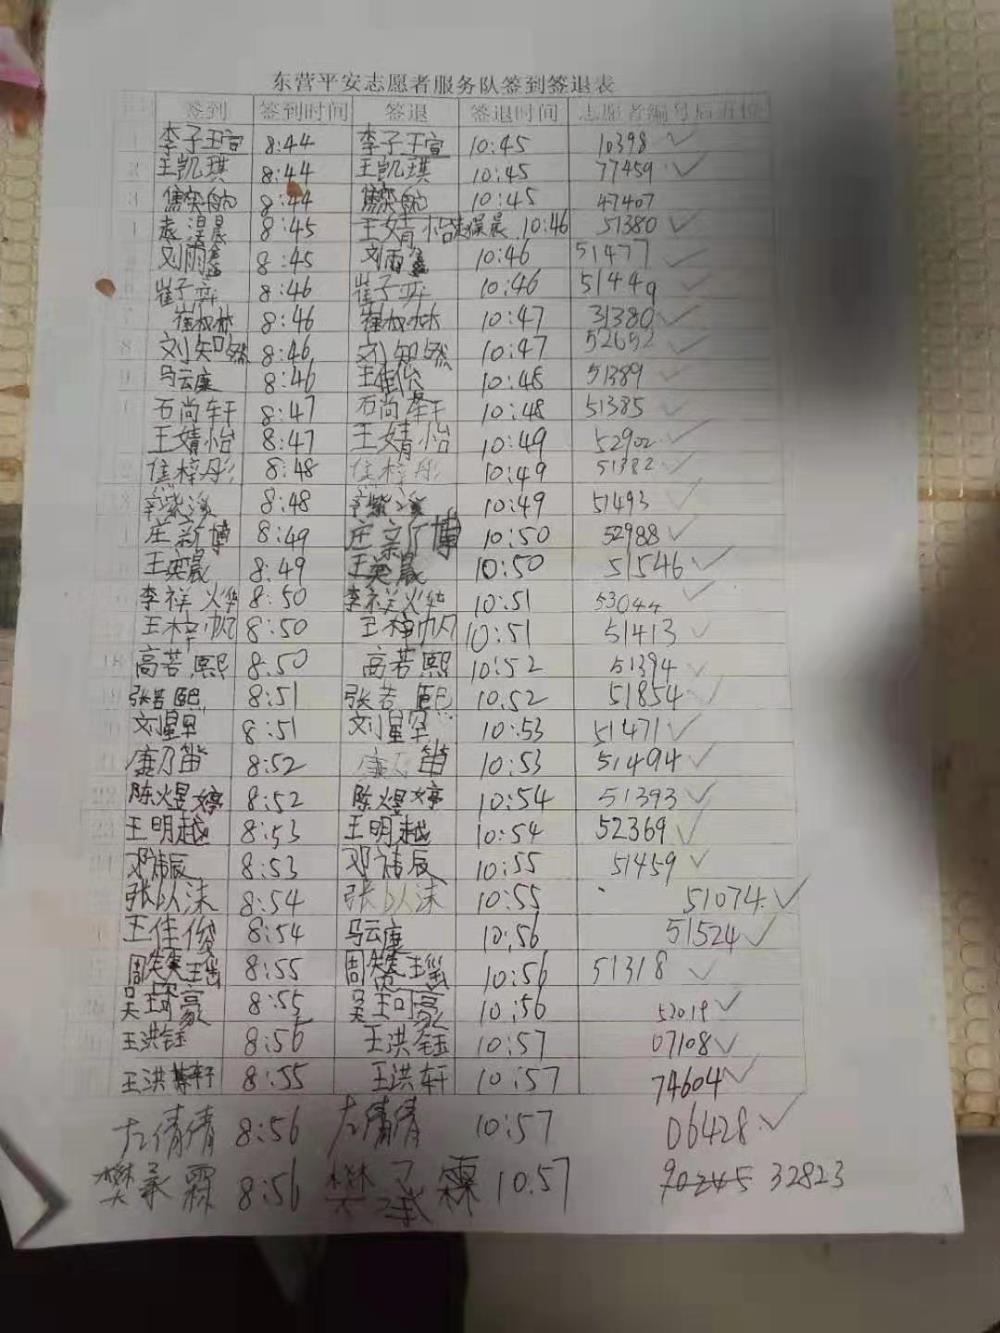 东营平安志愿者服务队签到签退表
签到 签到时间 签退 签退时间 志愿者编号后五位
李子玉宣 8:44 李子玉宣 10:45 10398
王凯琪 8:44 王凯琪 10:45 77459
8:44 10:45 47407
8:45 王婧怡 10:46 51380
刘雨鑫 8:45 刘雨鑫 10:46 51477
崔子弈 8:46 崔子弈 10:46 51449
崔椒林 8:46 崔椒林 10:47 31380
刘知然 8:46 刘知然 10:47 52652
马云康 8:46 王佳俊 10:48 51389
石尚轩 8:47 石尚轩 10:48 51385
王婧怡 8:47 王婧怡 10:49 52902
信梓彤 8:48 信梓彤 10:49 51382
8:48 10:49 51493
庄新博 8:49 庄新博 10:50 52988
王英晟 8:49 王英晟 10:50 51546
李祥烨 8:50 李祥烨 10:51 53044
王梓帆 8:50 王梓帆 10:51 51413
高若熙 8:50 高若熙 10:52 51394
张若熙 8:51 张若熙 10:52 51854
刘星罕 8:51 刘星罕 10:53 51471
康乃笛 8:52 康乃笛 10:53 51494
陈煜婷 8:52 陈煜婷 10:54 51393
王明越 8:53 王明越 10:54 52369
邓祎辰 8:53 邓祎辰 10:55 51459
张以沫 8:54 张以沫 10:55 51074
王佳俊 8:54 马云康 10:56 51524
8:55 10:56 51318
吴珂豪 8:55 吴珂豪 10:56 52019
王洪钰 8:56 王洪钰 10:57 07108
王洪轩 8:55 王洪轩 10:57 74604
左倩倩 8:56 左倩倩 10:57 06428
樊承霖 8:56 樊承霖 10.57 32823